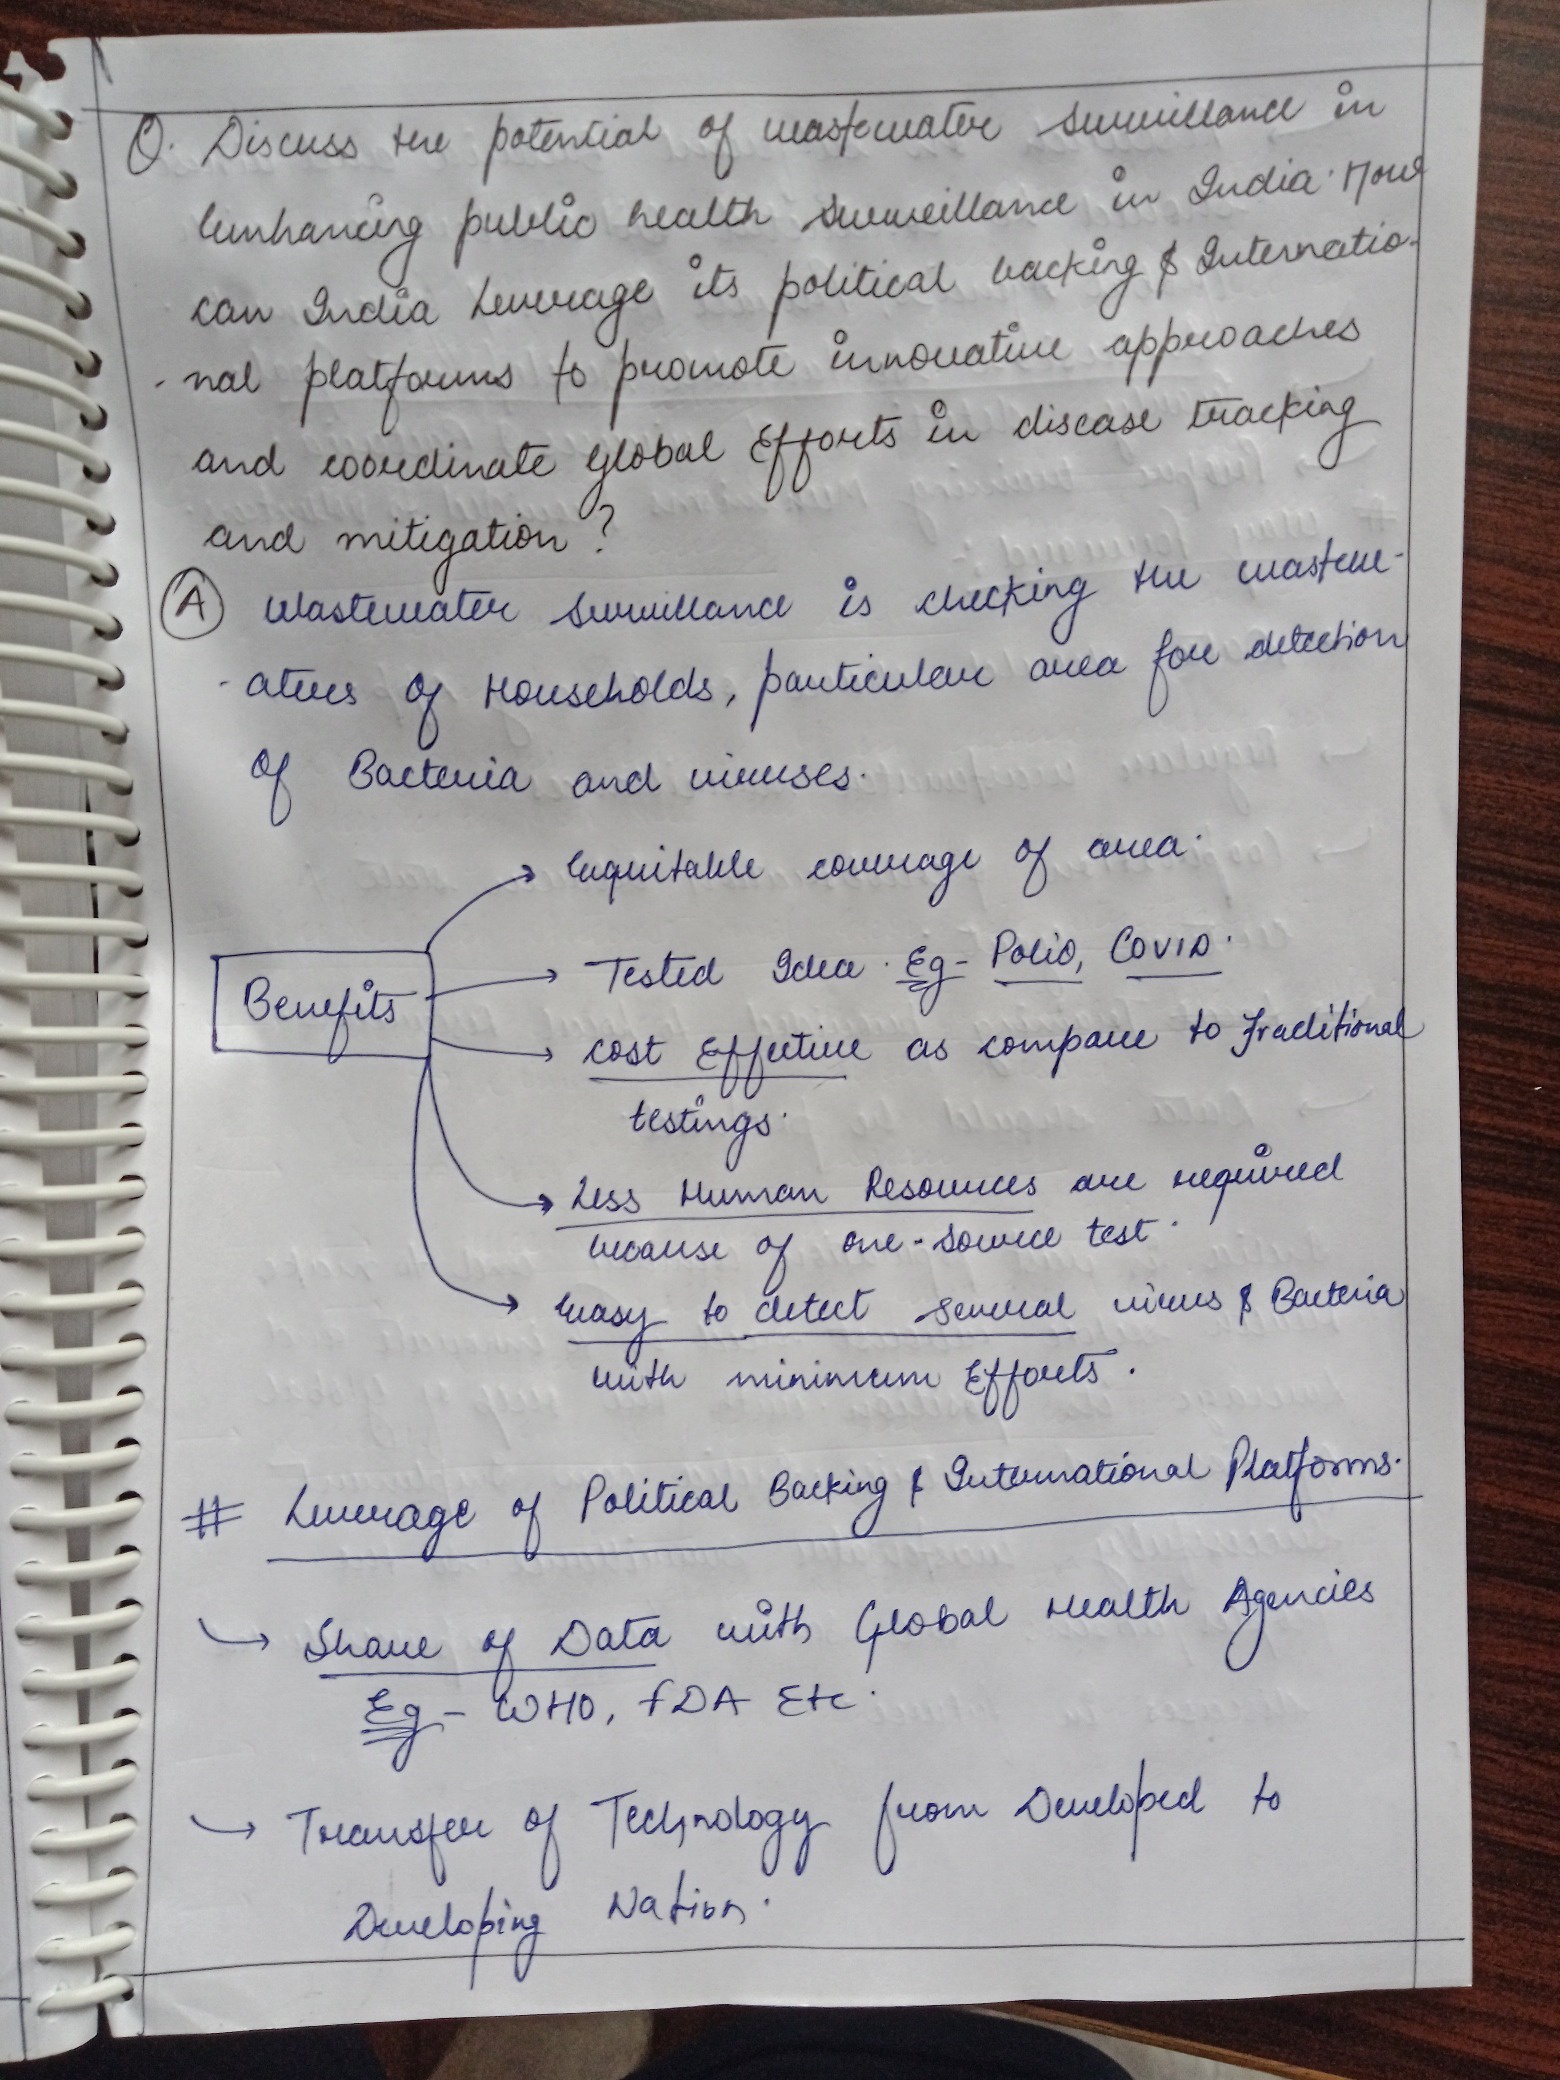 Q. Discuss the potential of wastewater surveillance in
enhancing public health surveillance in India. How
can India leverage its political backing & Internatio-
-nal platforms to promote innovative approaches
and coordinate global Efforts in disease tracking
and mitigation?
A Wastewater surveillance is checking the wastew-
-aters of Households, particular area for detection
of Bacteria and viruses.
Benefits
Equitable coverage of area.
Tested Idea. Eg- Polio, COVID.
Cost Effective as compare to Traditional
testings.
Less Human Resources are required
because of one-source test.
Easy to detect several virus & Bacteria
with minimum Efforts.
# Leverage of Political Backing & International Platforms.
Share of Data with Global Health Agencies
Eg- WHO, FDA Etc.
Transfer of Technology from Developed to
Developing Nation.